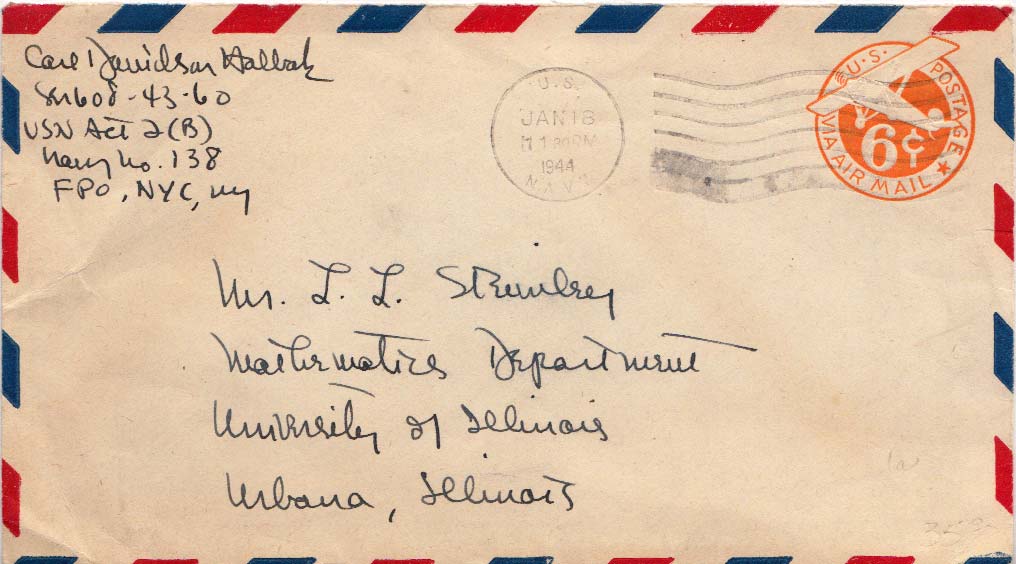 Carl Davidson
608-43-60
USN Act 2(B)
Navy No. 138
FPO, NYC, NY
U.S.
JAN 18
PM
1944
NAVY
U.S. POSTAGE
6¢
VIA AIR MAIL
Mr. L. L. Steimley
Mathematics Department
University of Illinois
Urbana, Illinois